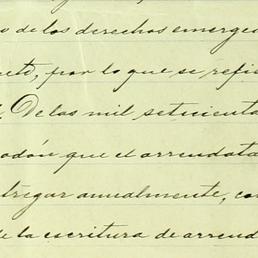 s de los derechos emerge
reto, por lo que se refie
De las mil setecienta
odón que el arrendata
tregar anualmente, con
de la escritura de arrend